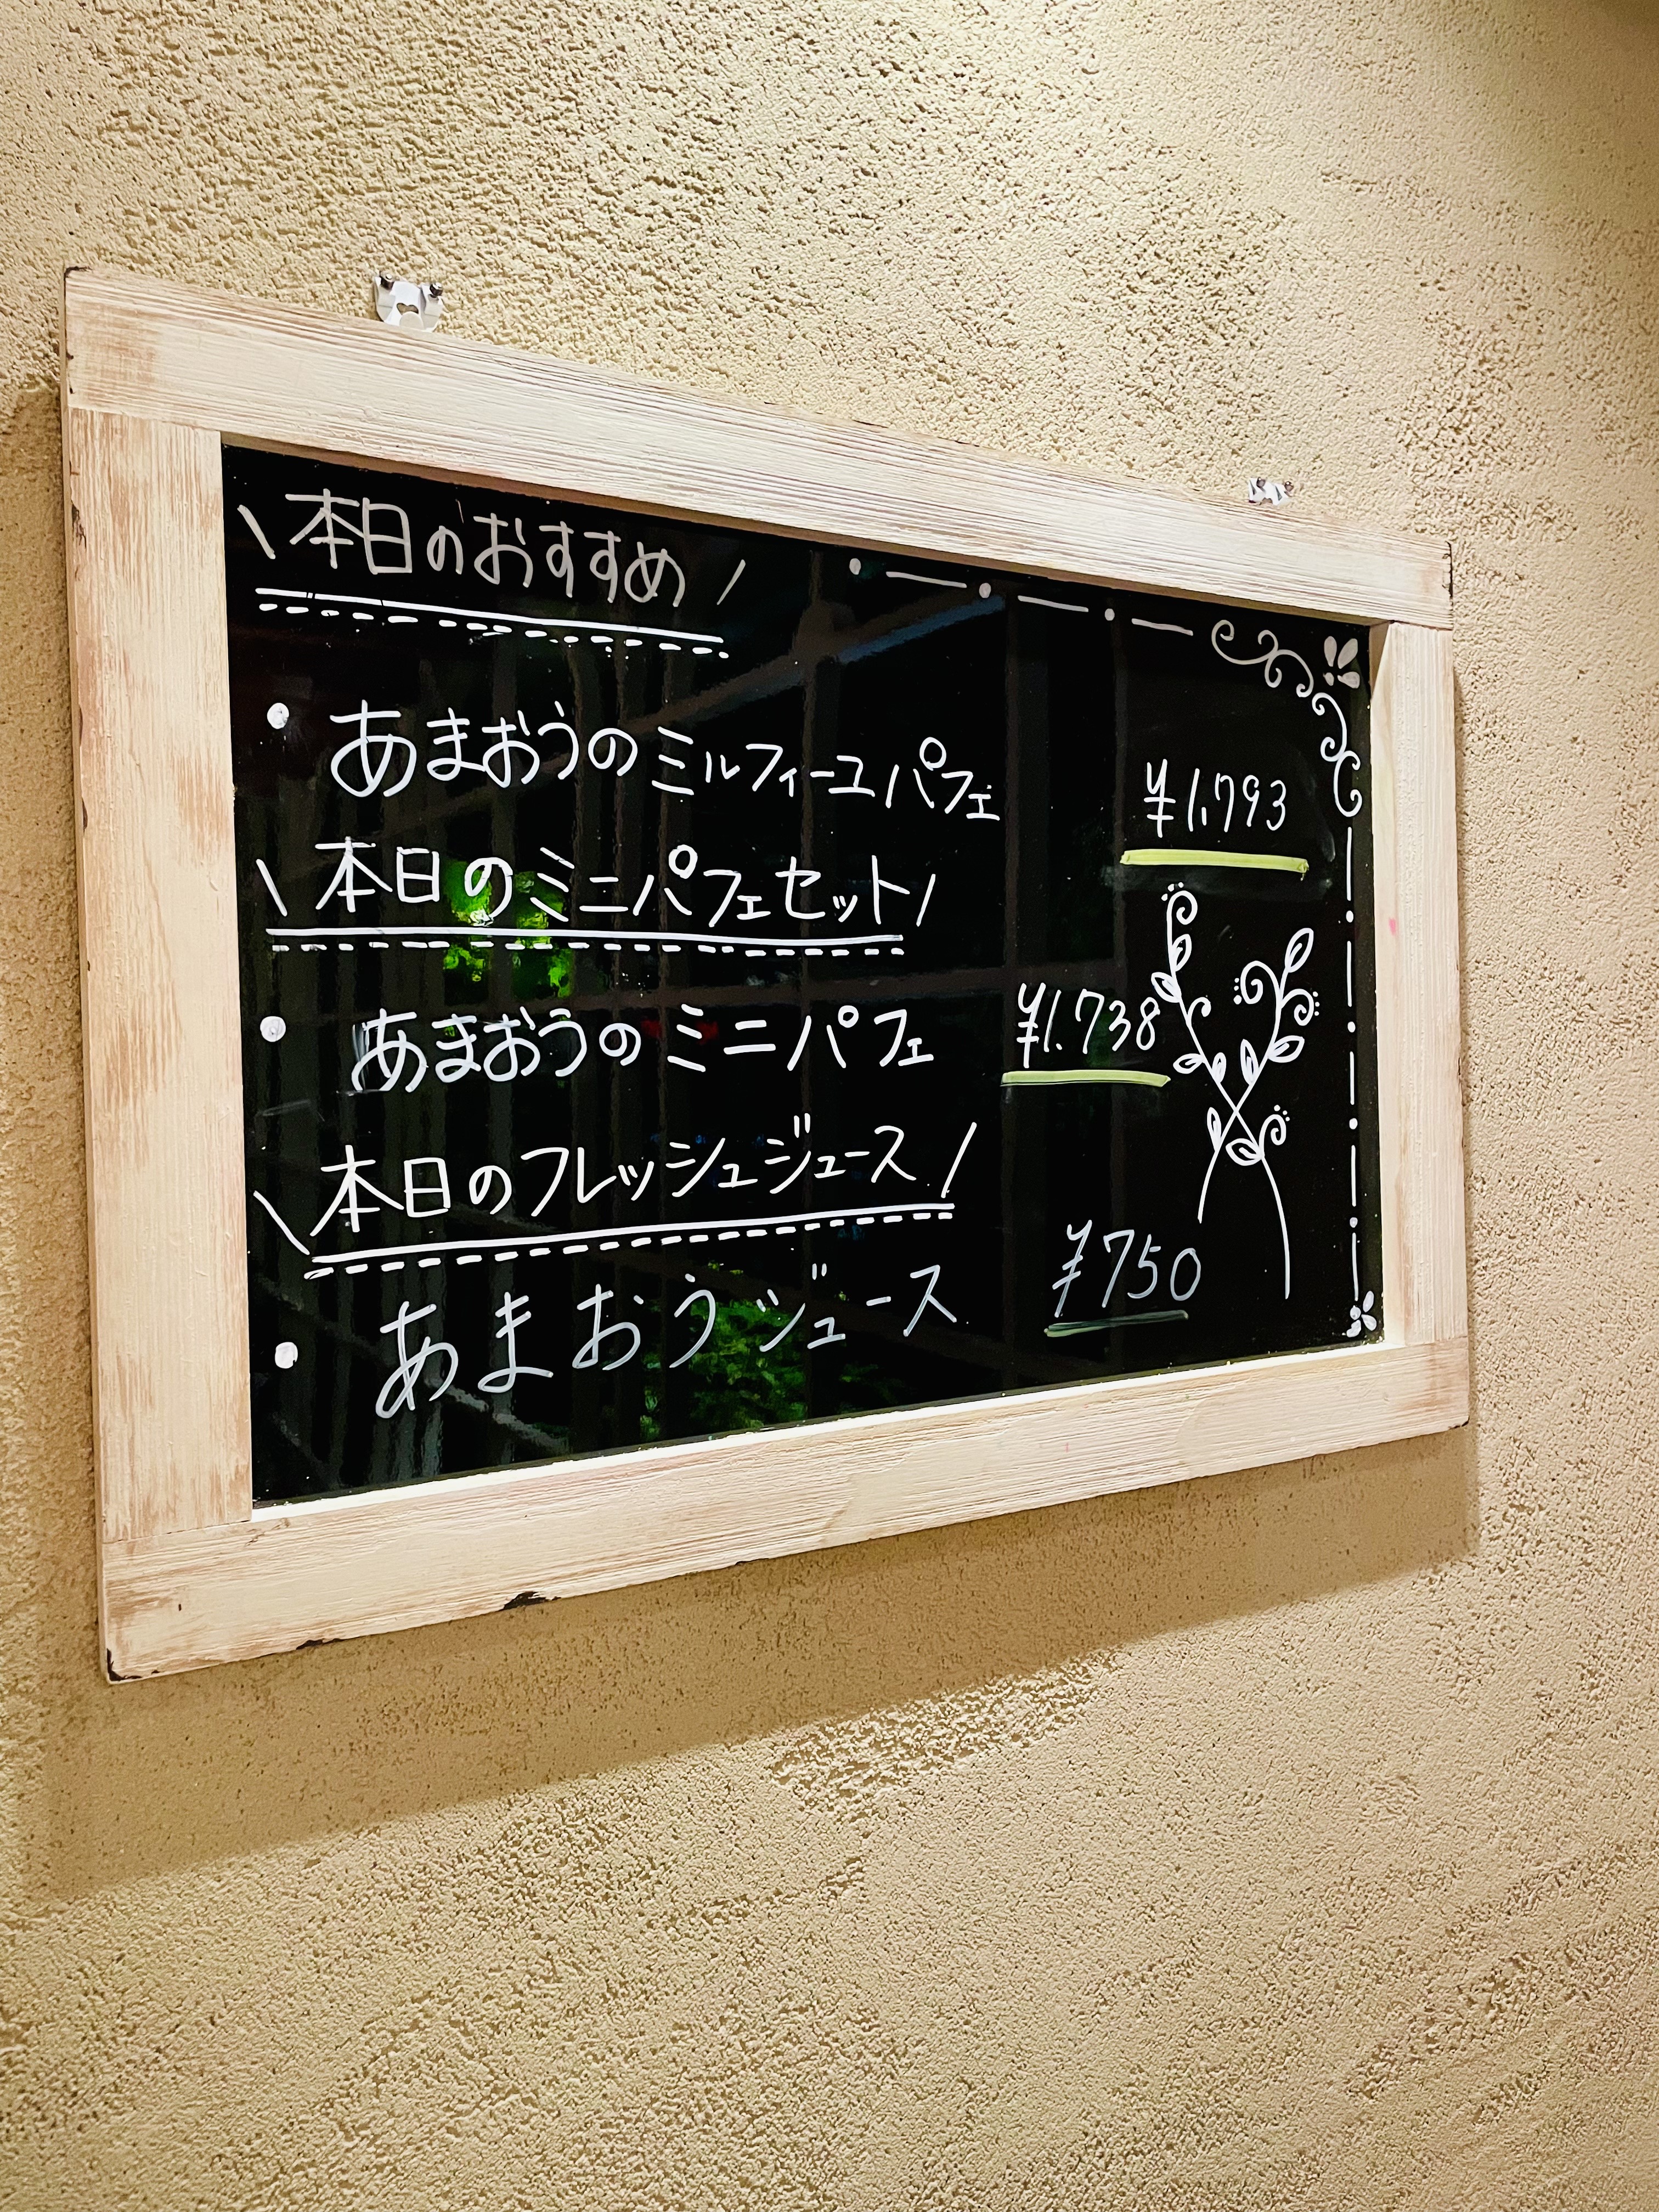 \ 本日のおすすめ /
• あまおうのミルフィーユパフェ ¥1.793
\ 本日のミニパフェセット /
• あまおうのミニパフェ ¥1.738
\ 本日のフレッシュジュース /
• あまおうジュース ¥750